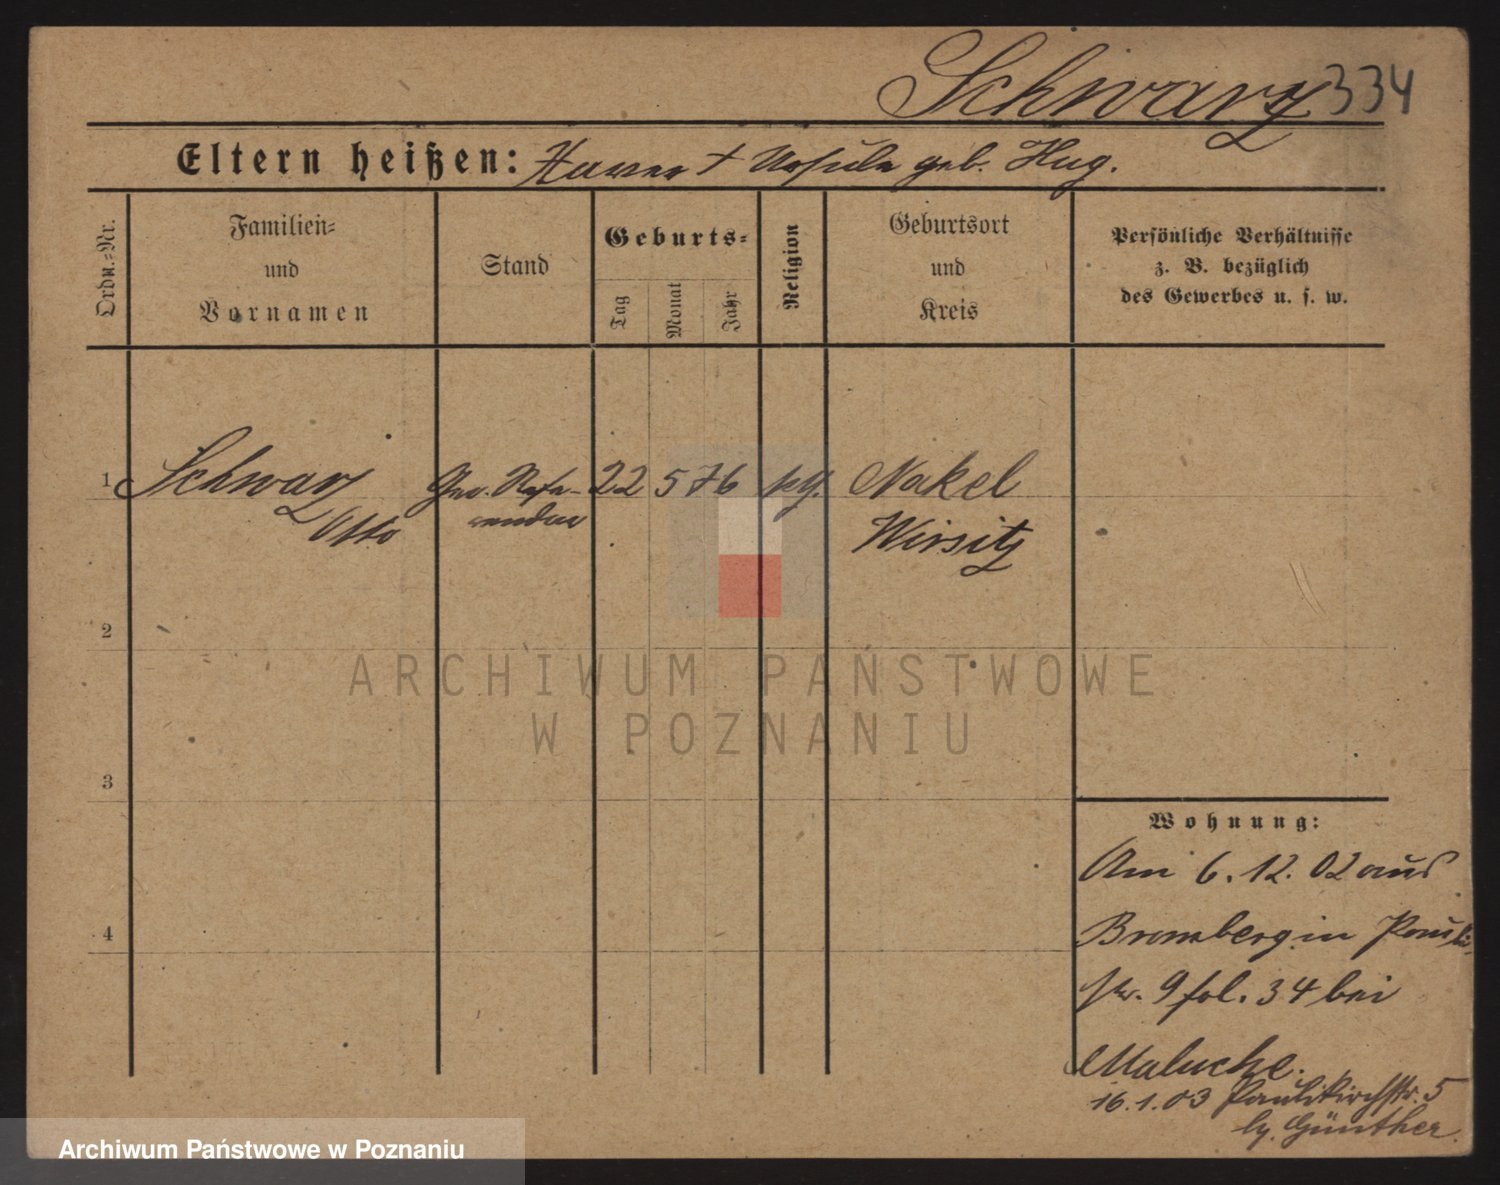 Schwarz 334
Eltern heißen: Xaver † Ursula geb. Hug.
Ordn.-Nr.
Familien-
und
Vornamen
Stand
Geburts-
Tag
Monat
Jahr
Religion
Geburtsort
und
Kreis
Persönliche Verhältnisse
z. B. bezüglich
des Gewerbes u. s. w.
1 Schwarz Refe- 22 5 76 Nakel
Otto rendar Wirsitz
2
ARCHIWUM PAŃSTWOWE
W POZNANIU
3
Wohnung:
Am 6. 12. 02 aus
4 Bromberg in Pauli-
str. 9 fol. 34 bei
Maluche.
16.1.03 Paulikirchstr. 5
by. Günther.
Archiwum Państwowe w Poznaniu